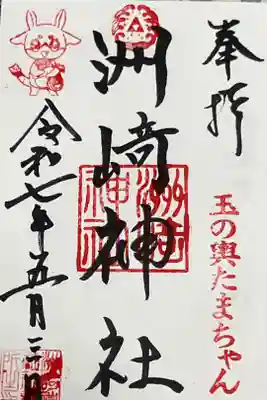 奉拝
玉の輿たまちゃん
洲崎神社
令和七年五月三日